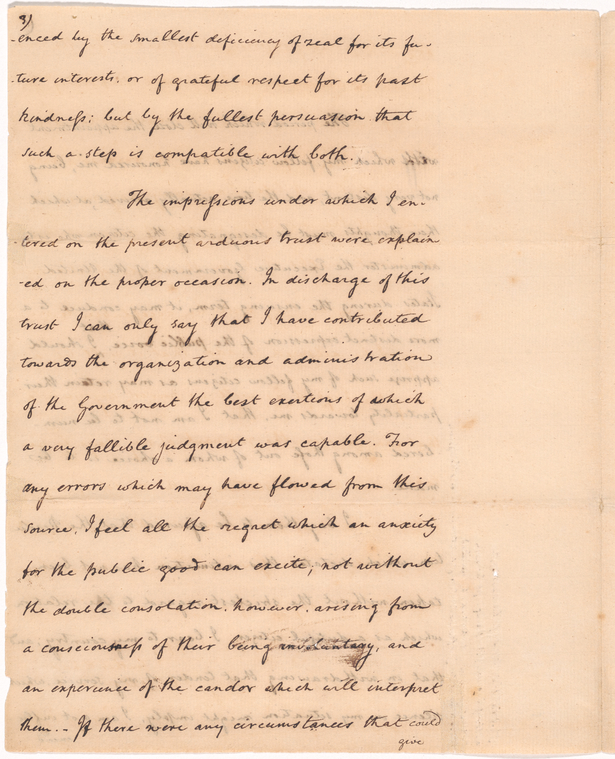 3)
-enced by the smallest deficiency of zeal for its fu-
-ture interests, or of grateful respect for its past
kindness; but by the fullest persuasion that
such a step is compatible with both.
The impressions under which I en-
-tered on the present arduous trust were explain
-ed on the proper occasion. In discharge of this
trust I can only say that I have contributed
towards the organization and administration
of the Government the best exertions of which
a very fallible judgment was capable. For
any errors which may have flowed from this
source, I feel all the regret which an anxiety
for the public good can excite; not without
the double consolation, however, arising from
a consciousness of their being involuntary, and
an experience of the candor which will interpret
them. - If there were any circumstances that could
give